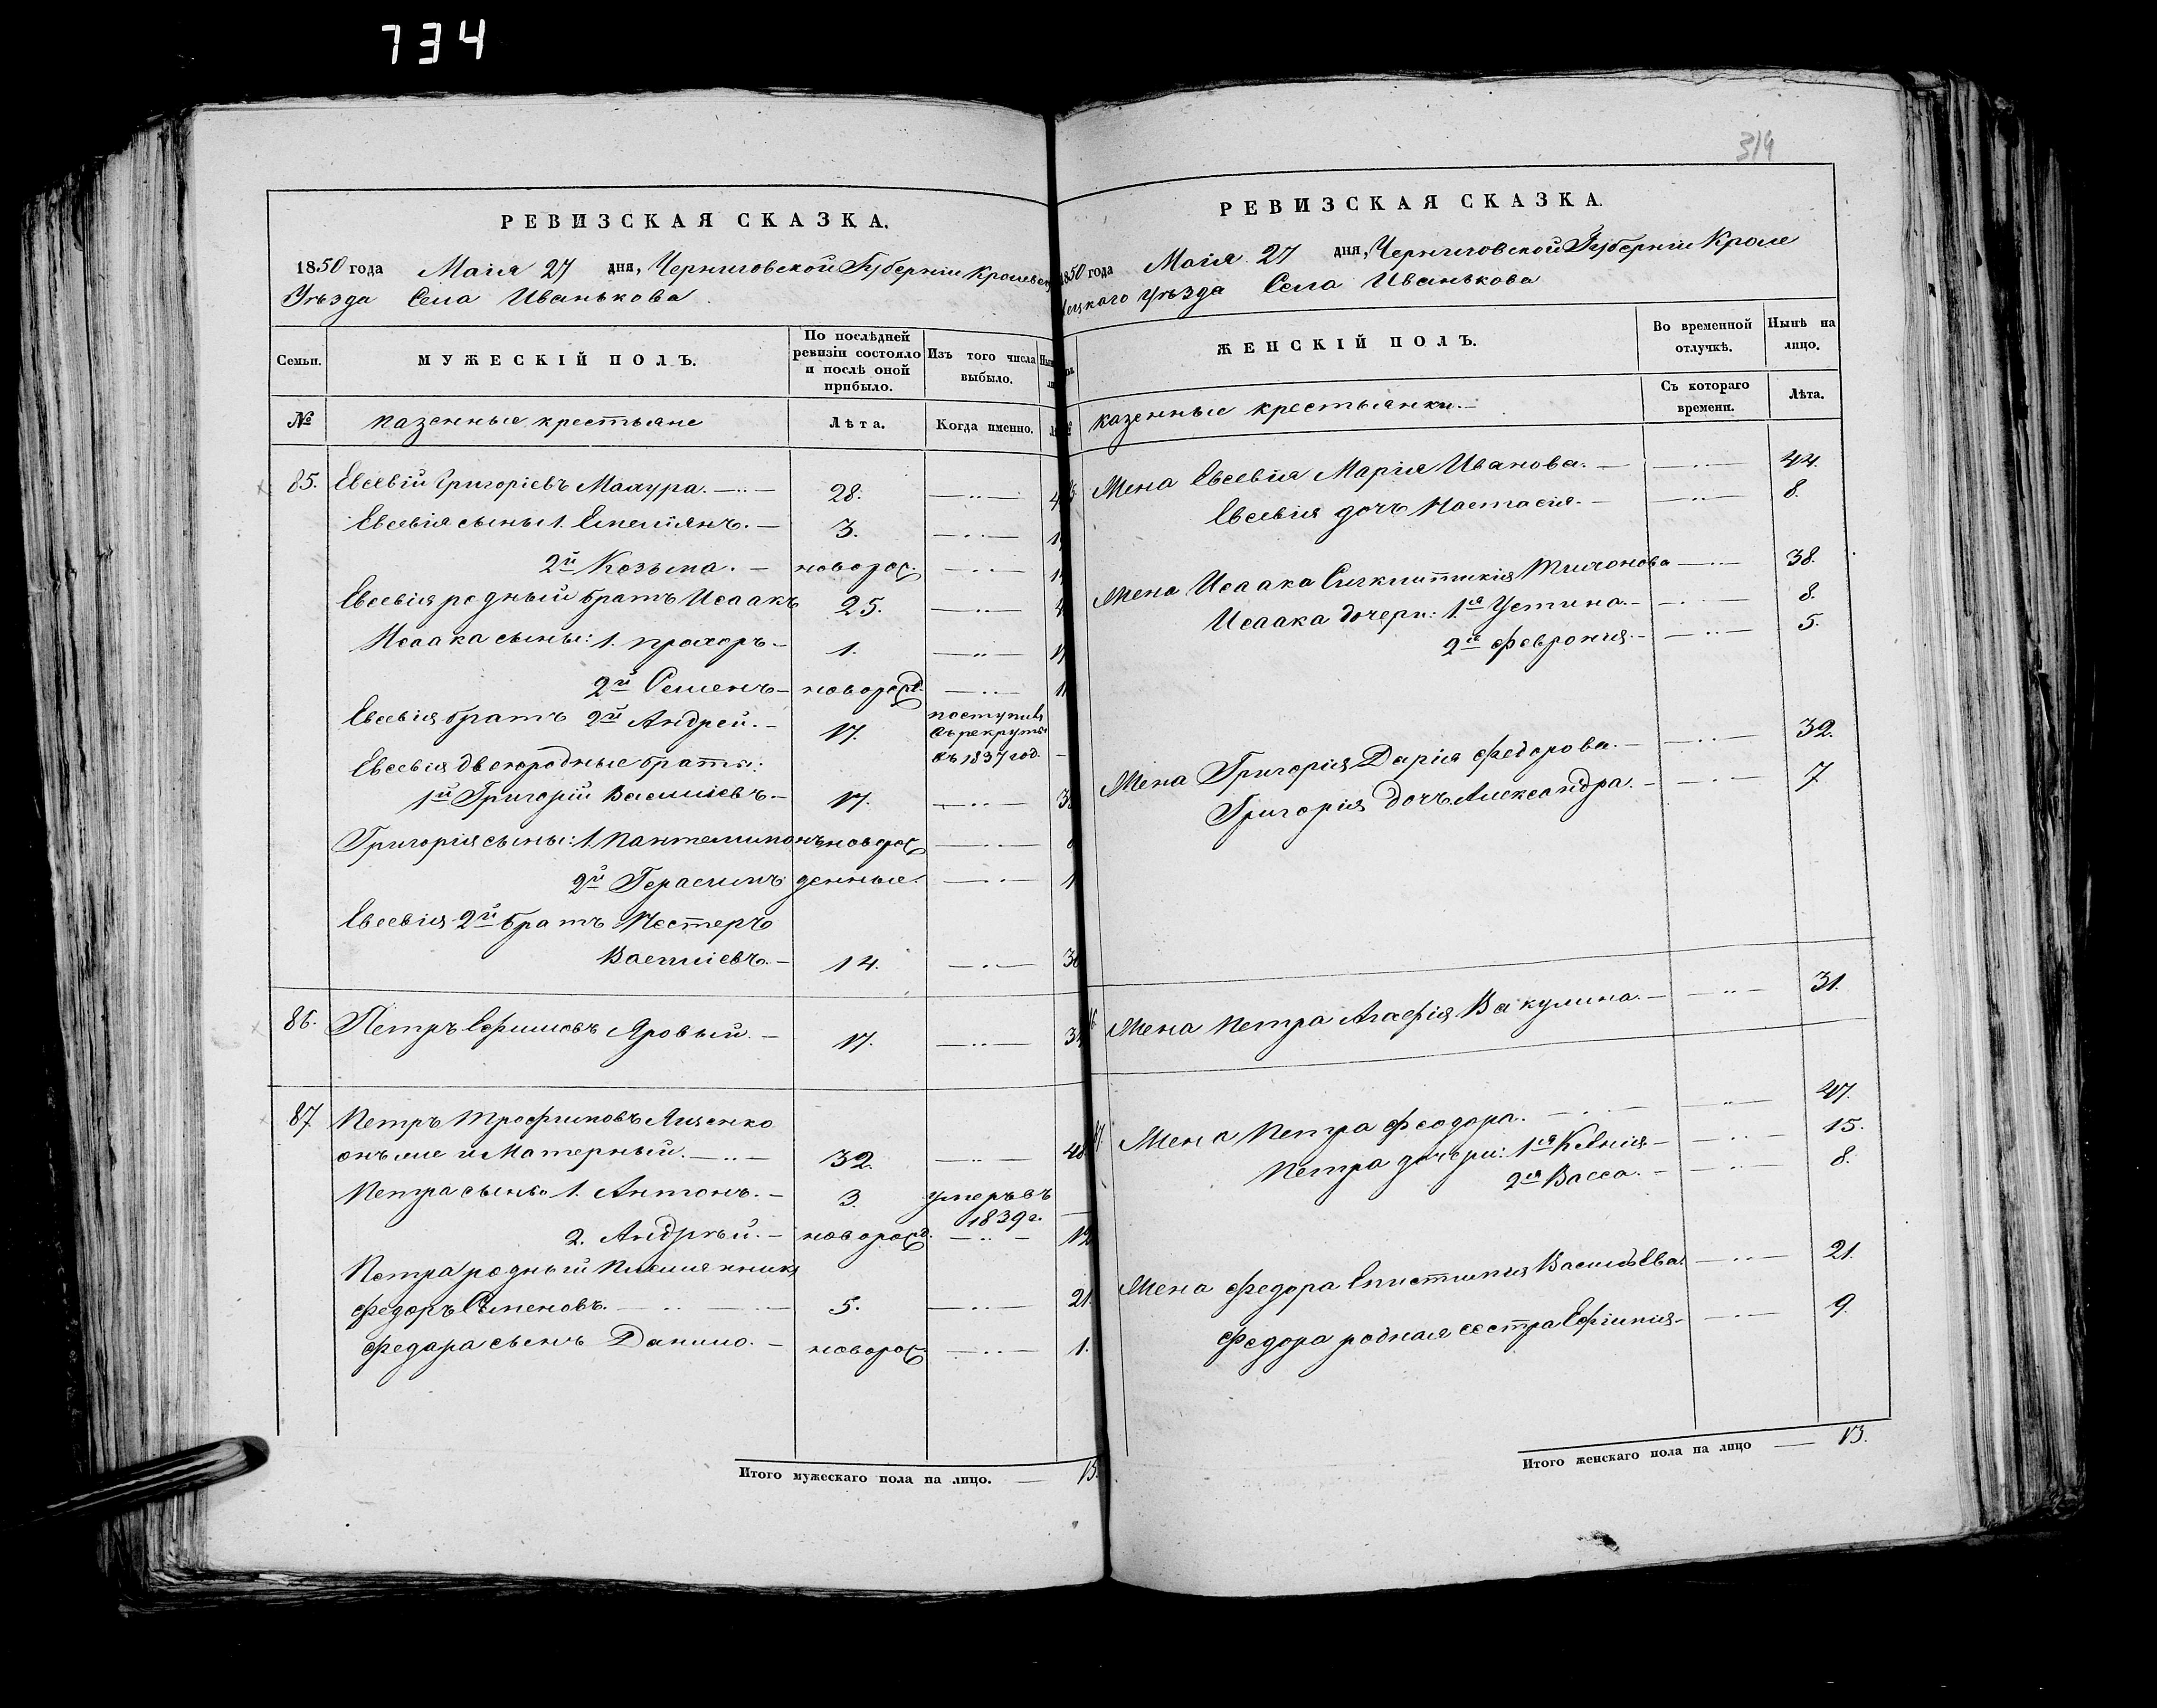 734
РЕВИЗСКАЯ СКАЗКА.
1850 года Маія 27 дня, Черниговской Губерніи Кролевец
Уѣзда Села Иванькова
Семьи. МУЖЕСКІЙ ПОЛЪ. По послѣдней ревизіи состояло и послѣ оной прибыло. Изъ того числа выбыло.
№ казенные крестьяне Лѣта. Когда именно.
85. Евсевій Григоріевъ Мачура. 28.
Евсевія сыны 1. Емельянъ. 3.
2й Козьма. новорож.
Евсевія родный братъ Исаакъ 25.
Исаака сыны: 1. Прохоръ 1.
2й Семенъ новорожд.
Евсевія братъ 2й Андрей. 17. поступилъ въ рекруты въ 1837 год.
Евсевія двоюродные братья:
1й Григорій Василіевъ 17.
Григорія сыны: 1. Пантелимонъ новорож
2й Герасимъ денные.
Евсевія 2й братъ Нестеръ
Василіевъ. 14. 30
86. Петръ Ефимовъ Яровый. 17. 34
87 Петръ Трофимовъ Лизенко
онъ же и Матерный. 32. 48
Петра сыны 1. Антонъ. 3. умеръ въ 1839 г.
2. Андрѣй. новорожд. 12
Петра родный племянникъ
Федоръ Семеновъ. 5. 21
Федора сынъ Данило. новорож. 1.
Итого мужескаго пола на лицо. 15.
314
РЕВИЗСКАЯ СКАЗКА.
1850 года Маія 27 дня, Черниговской Губерніи Кроле
вецкаго уѣзда Села Иванькова
ЖЕНСКІЙ ПОЛЪ. Во временной отлучкѣ. Нынѣ на лицо.
казенные крестьянки. Съ котораго времени. Лѣта.
Жена Евсевія Марія Иванова. 44.
Евсевія дочь Настасія. 8.
Жена Исаака Синклитикія Тихонова 38.
Исаака дочери: 1я Устина. 8.
2я Февронія. 5.
Жена Григорія Дарія Федорова. 32.
Григорія дочь Александра. 7
Жена Петра Агафія Вакулина. 31.
Жена Петра Феодора. 47.
Петра дочери: 1я Ксенія 15.
2я Васса. 8.
Жена Федора Епистимія Васильева 21.
Федора родная сестра Ефимія 9.
Итого женскаго пола на лицо 13.